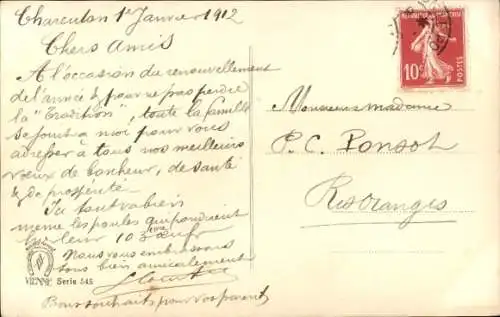 Charenton 1er Janvier 1912
Chers Amis
A l'occasion du renouvellement
de l'année & pour ne pas perdre
la "Tradition", toute la famille
se joint a moi pour vous
adresser à tous nos meilleurs
vœux de bonheur, de santé
& de prosperité.
Ici tout va bien
meme les poules qui pondirent
hier leur 103eme œuf
Nous vous embrassons
tous bien amicalement
Bons souhaits pour vos parents
VIENNE Serie 545
REPUBLIQUE FRANÇAISE
10c
POSTES
Monsieur madame
P. C. Ponsot
Ris Oranges